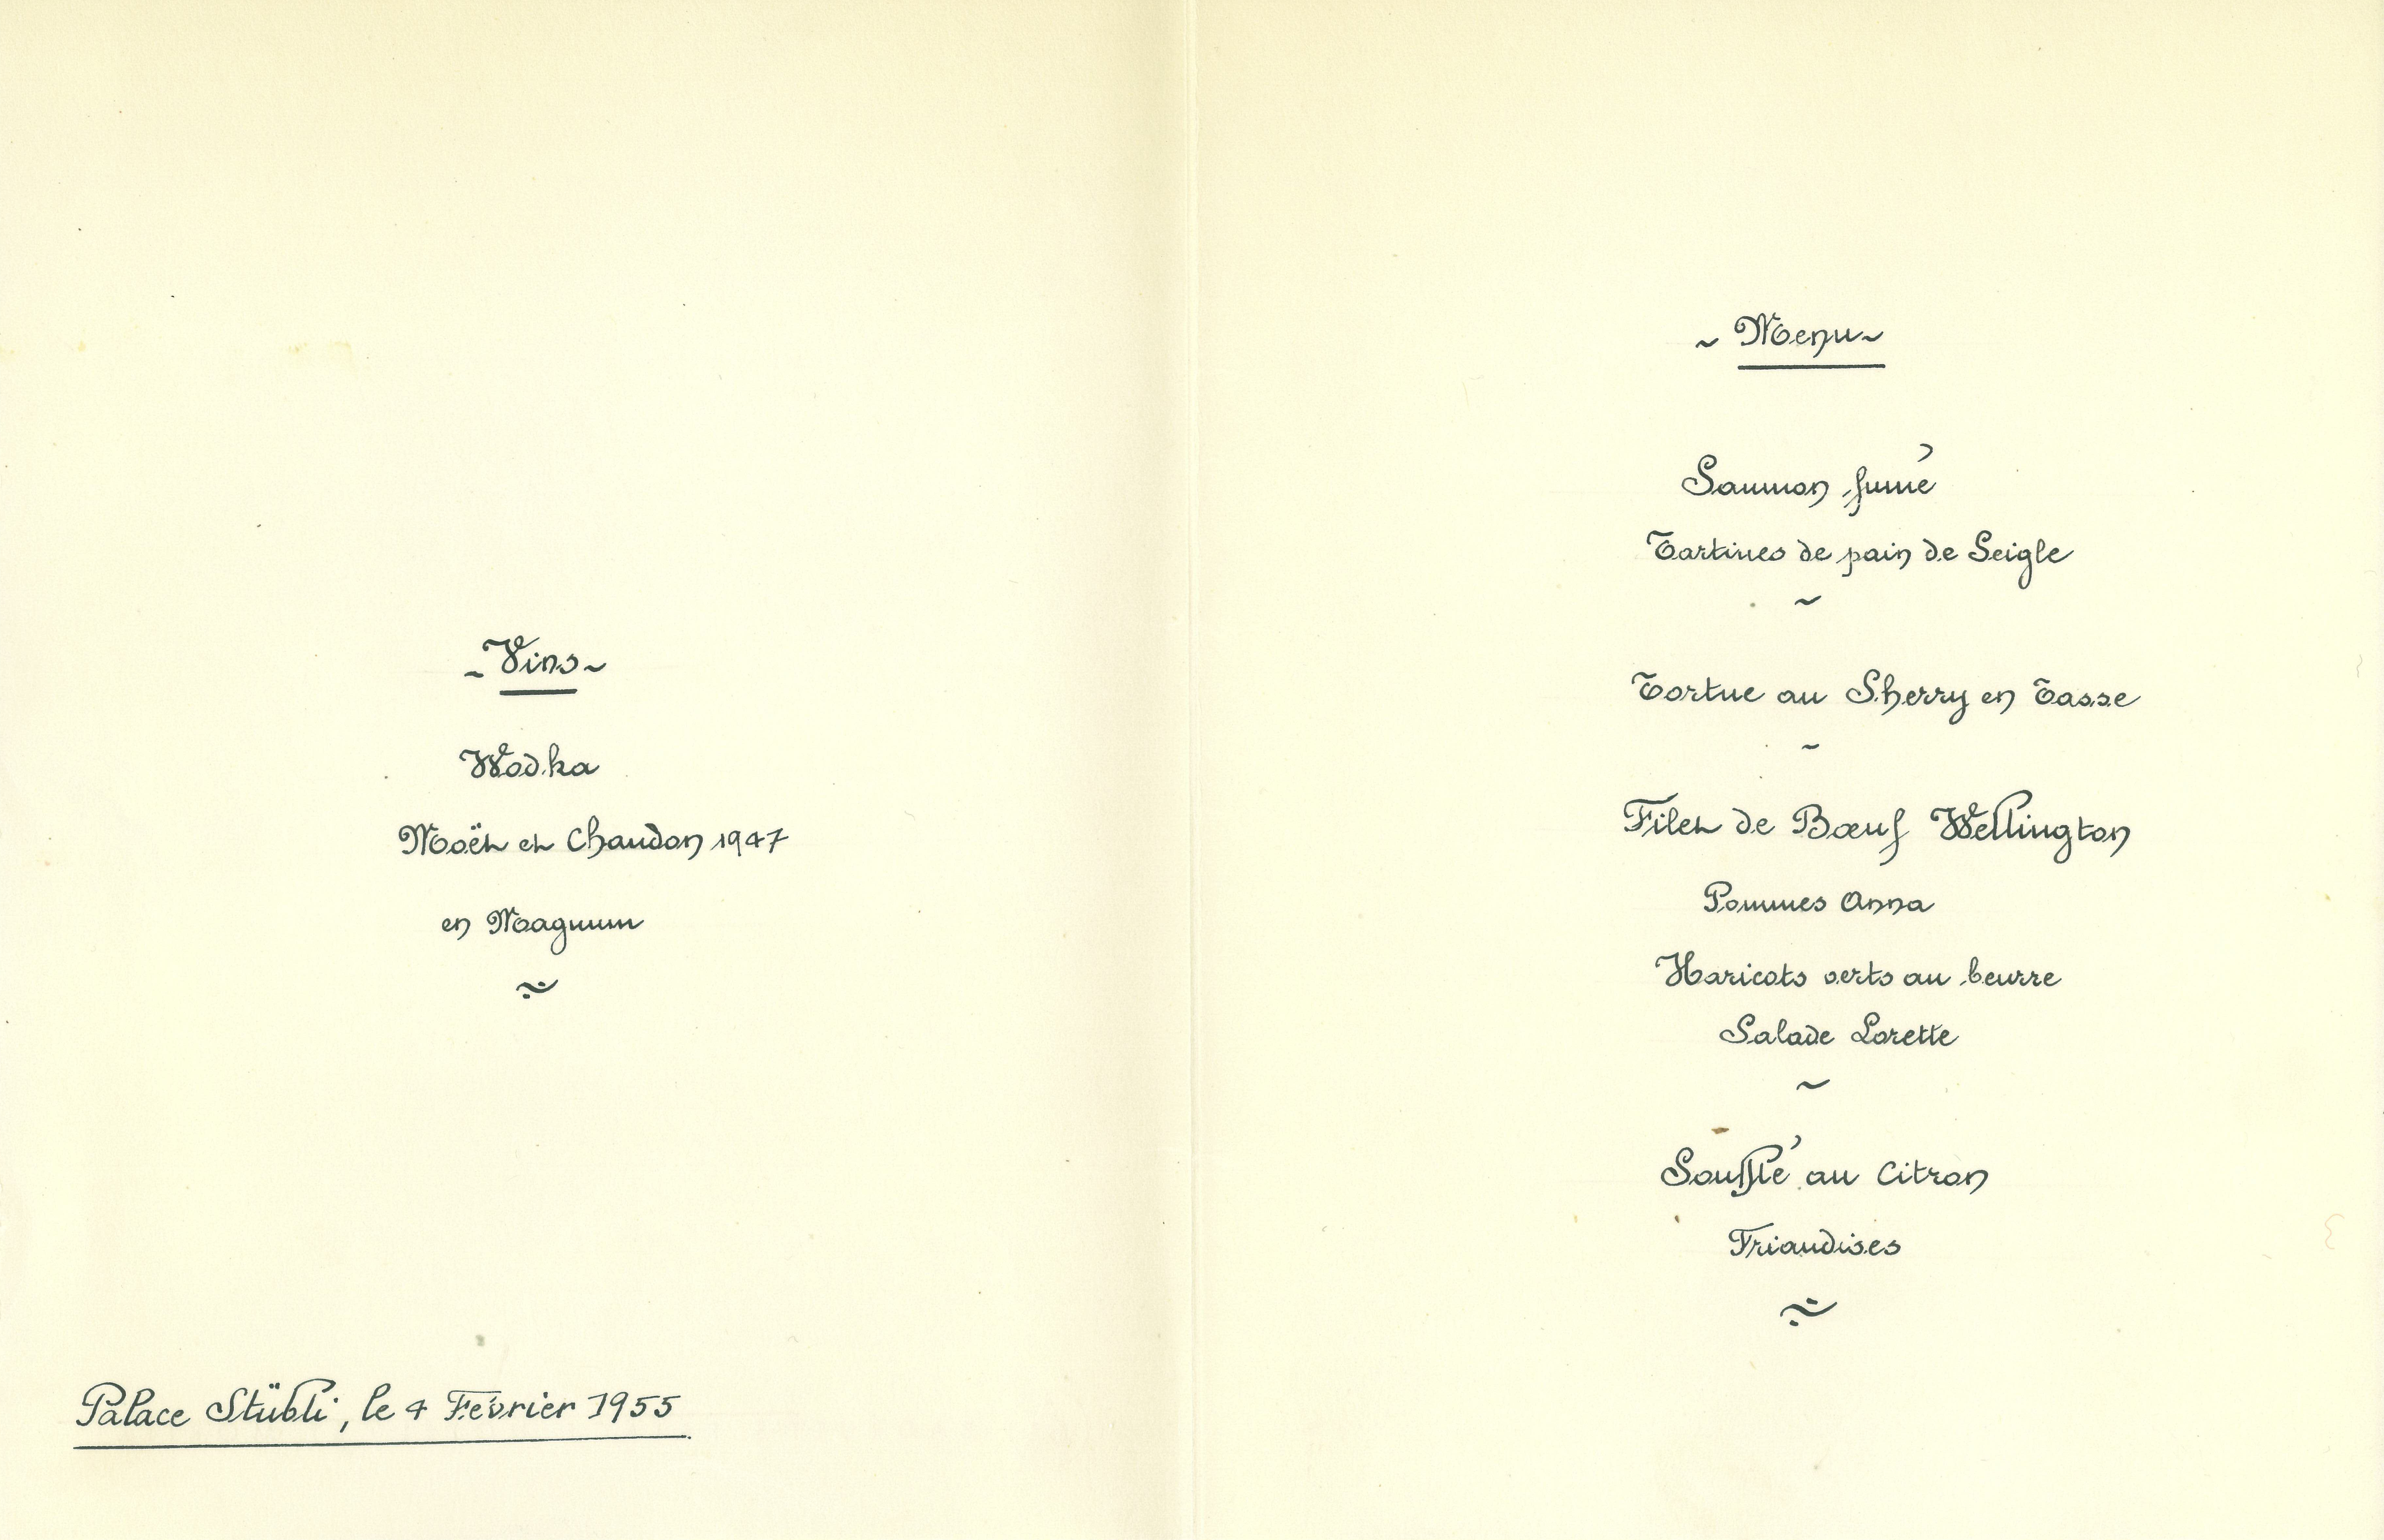 ~ Vins ~
Wodka
Moët et Chaudon 1947
en Magnum
~
Palace Stübli, le 4 Février 1955
~ Menu ~
Saumon fumé
Tartines de pain de Seigle
~
Tortue au Sherry en Tasse
~
Filet de Bœuf Wellington
Pommes Anna
Haricots verts au beurre
Salade Lorette
~
Soufflé au Citron
Friandises
~